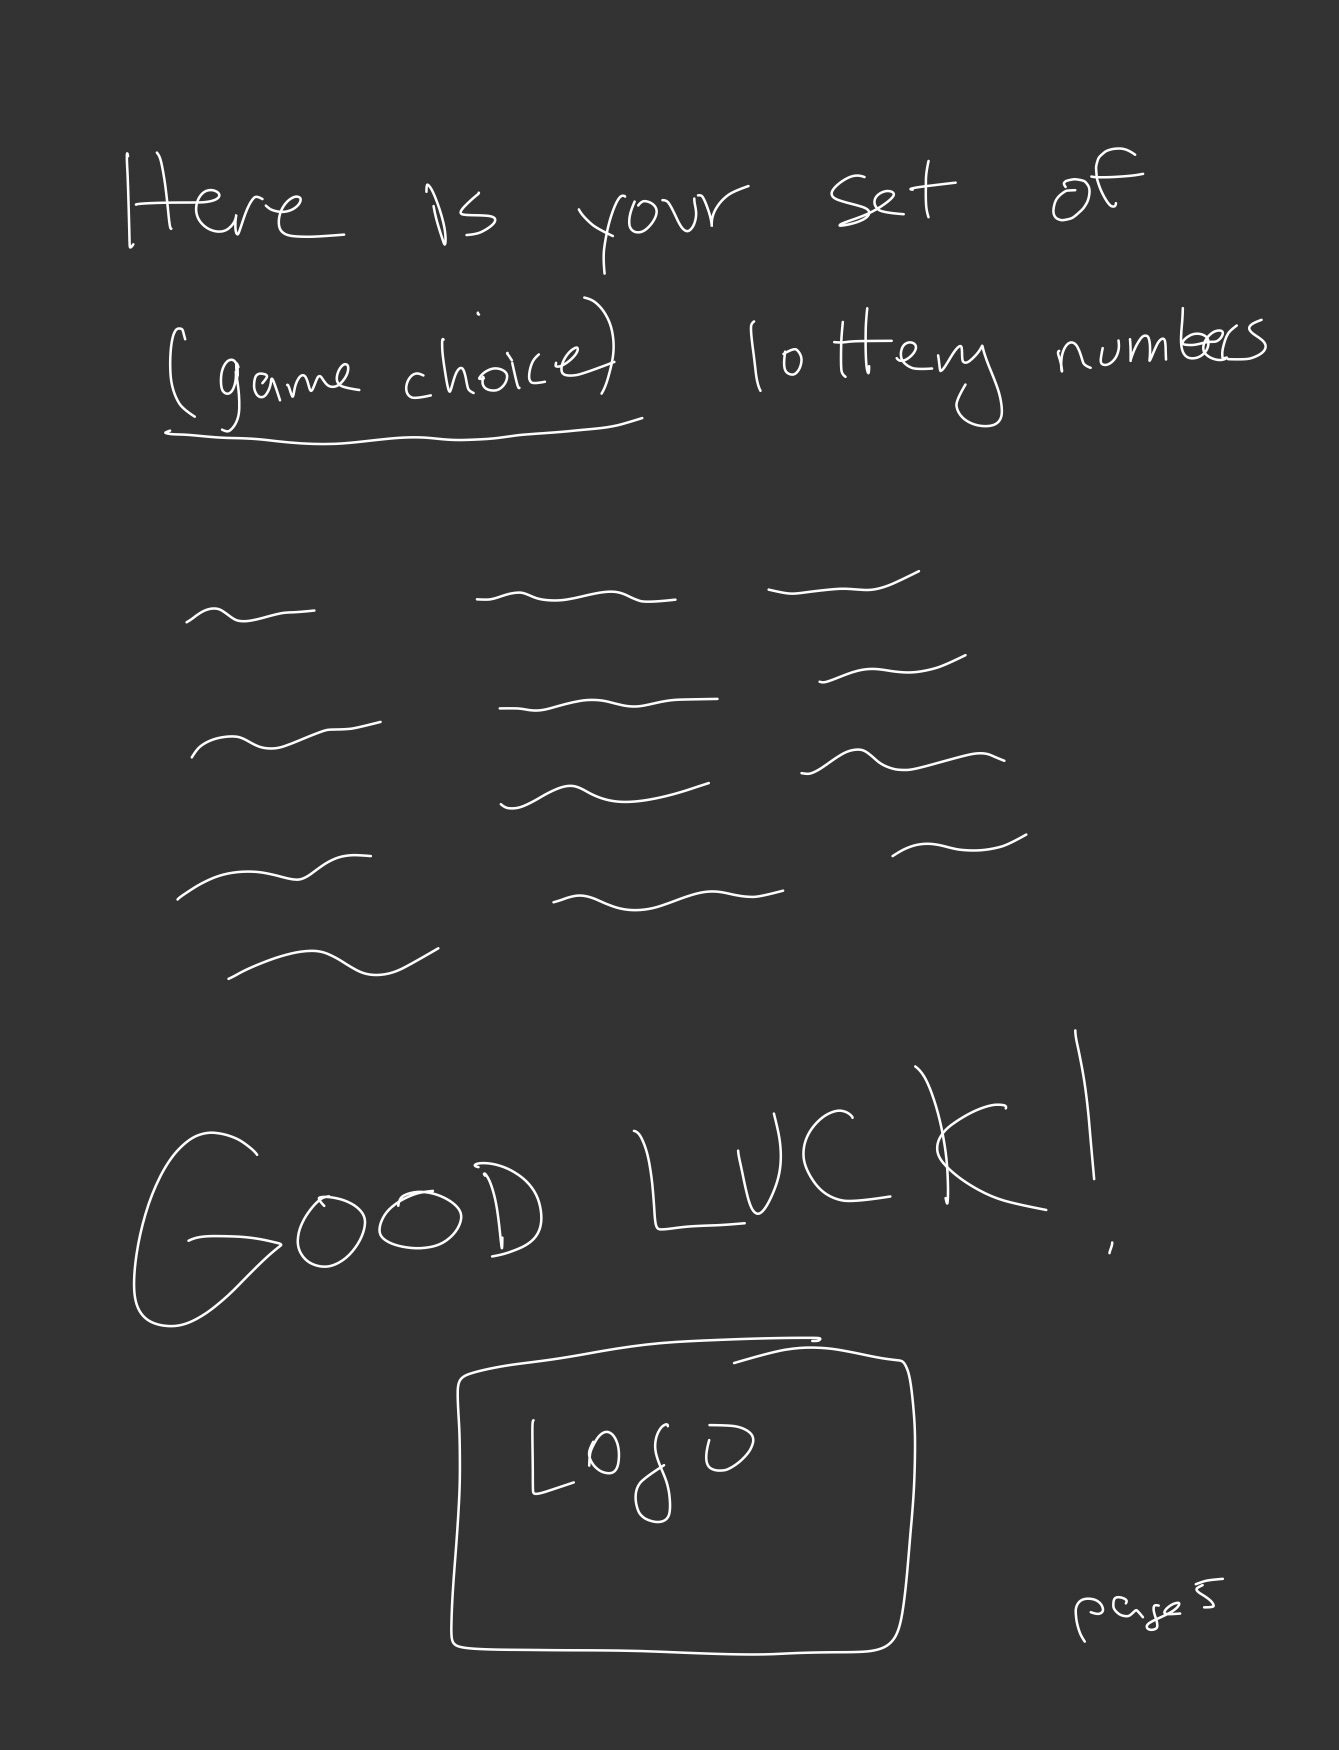 Here is your set of
(game choice) lottery numbers
GOOD LUCK!
Logo
page 5